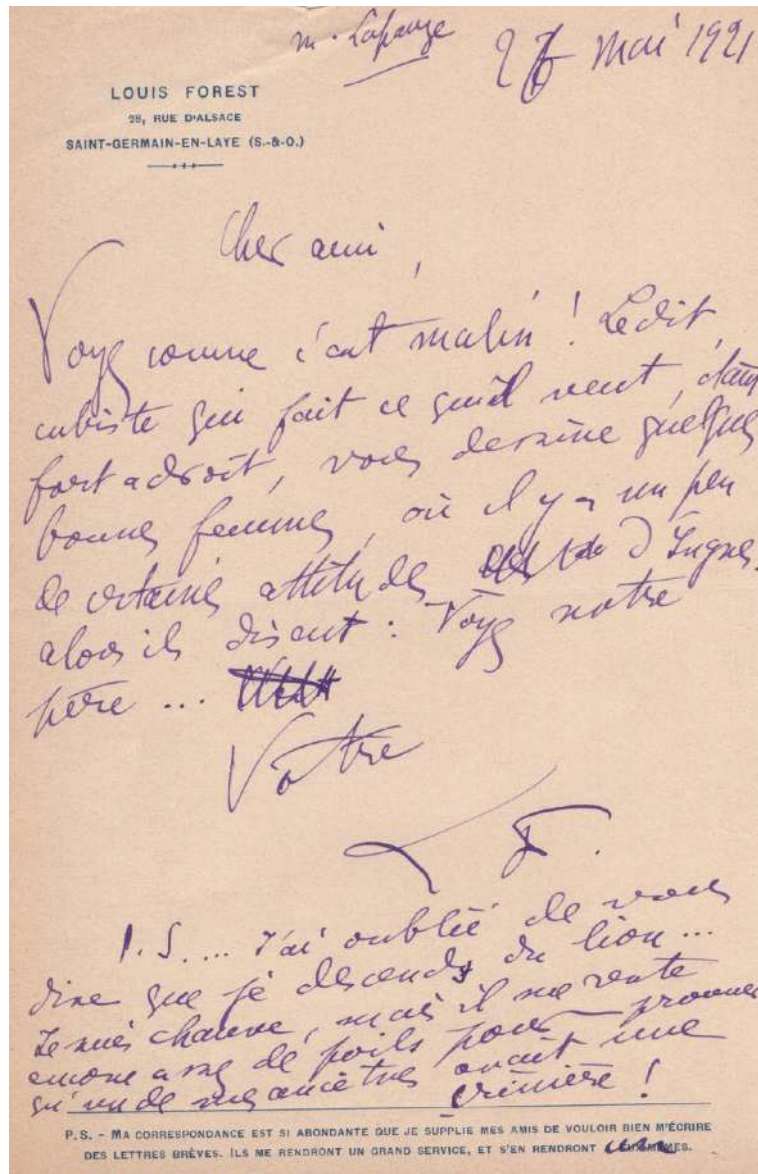 m. Lapauze
27 mai 1921
LOUIS FOREST
28, RUE D'ALSACE
SAINT-GERMAIN-EN-LAYE (S.-&-O.)
Cher ami,
Voyez comme c'est malin ! Ledit,
cubiste qui fait ce qu'il veut, étant
fort adroit, vous dessine quelques
bonnes femmes, où il y a un peu
de certaines attitudes d'Ingres.
alors ils disent : Voyez notre
père ...
Votre
L F.
P.S.... J'ai oublié de vous
dire que je descends du lion ...
Je suis chauve, mais il me reste
encore assez de poils pour prouver
qu'un de mes ancêtres avait une
crinière !
P.S. - MA CORRESPONDANCE EST SI ABONDANTE QUE JE SUPPLIE MES AMIS DE VOULOIR BIEN M'ÉCRIRE
DES LETTRES BRÈVES. ILS ME RENDRONT UN GRAND SERVICE, ET S'EN RENDRONT